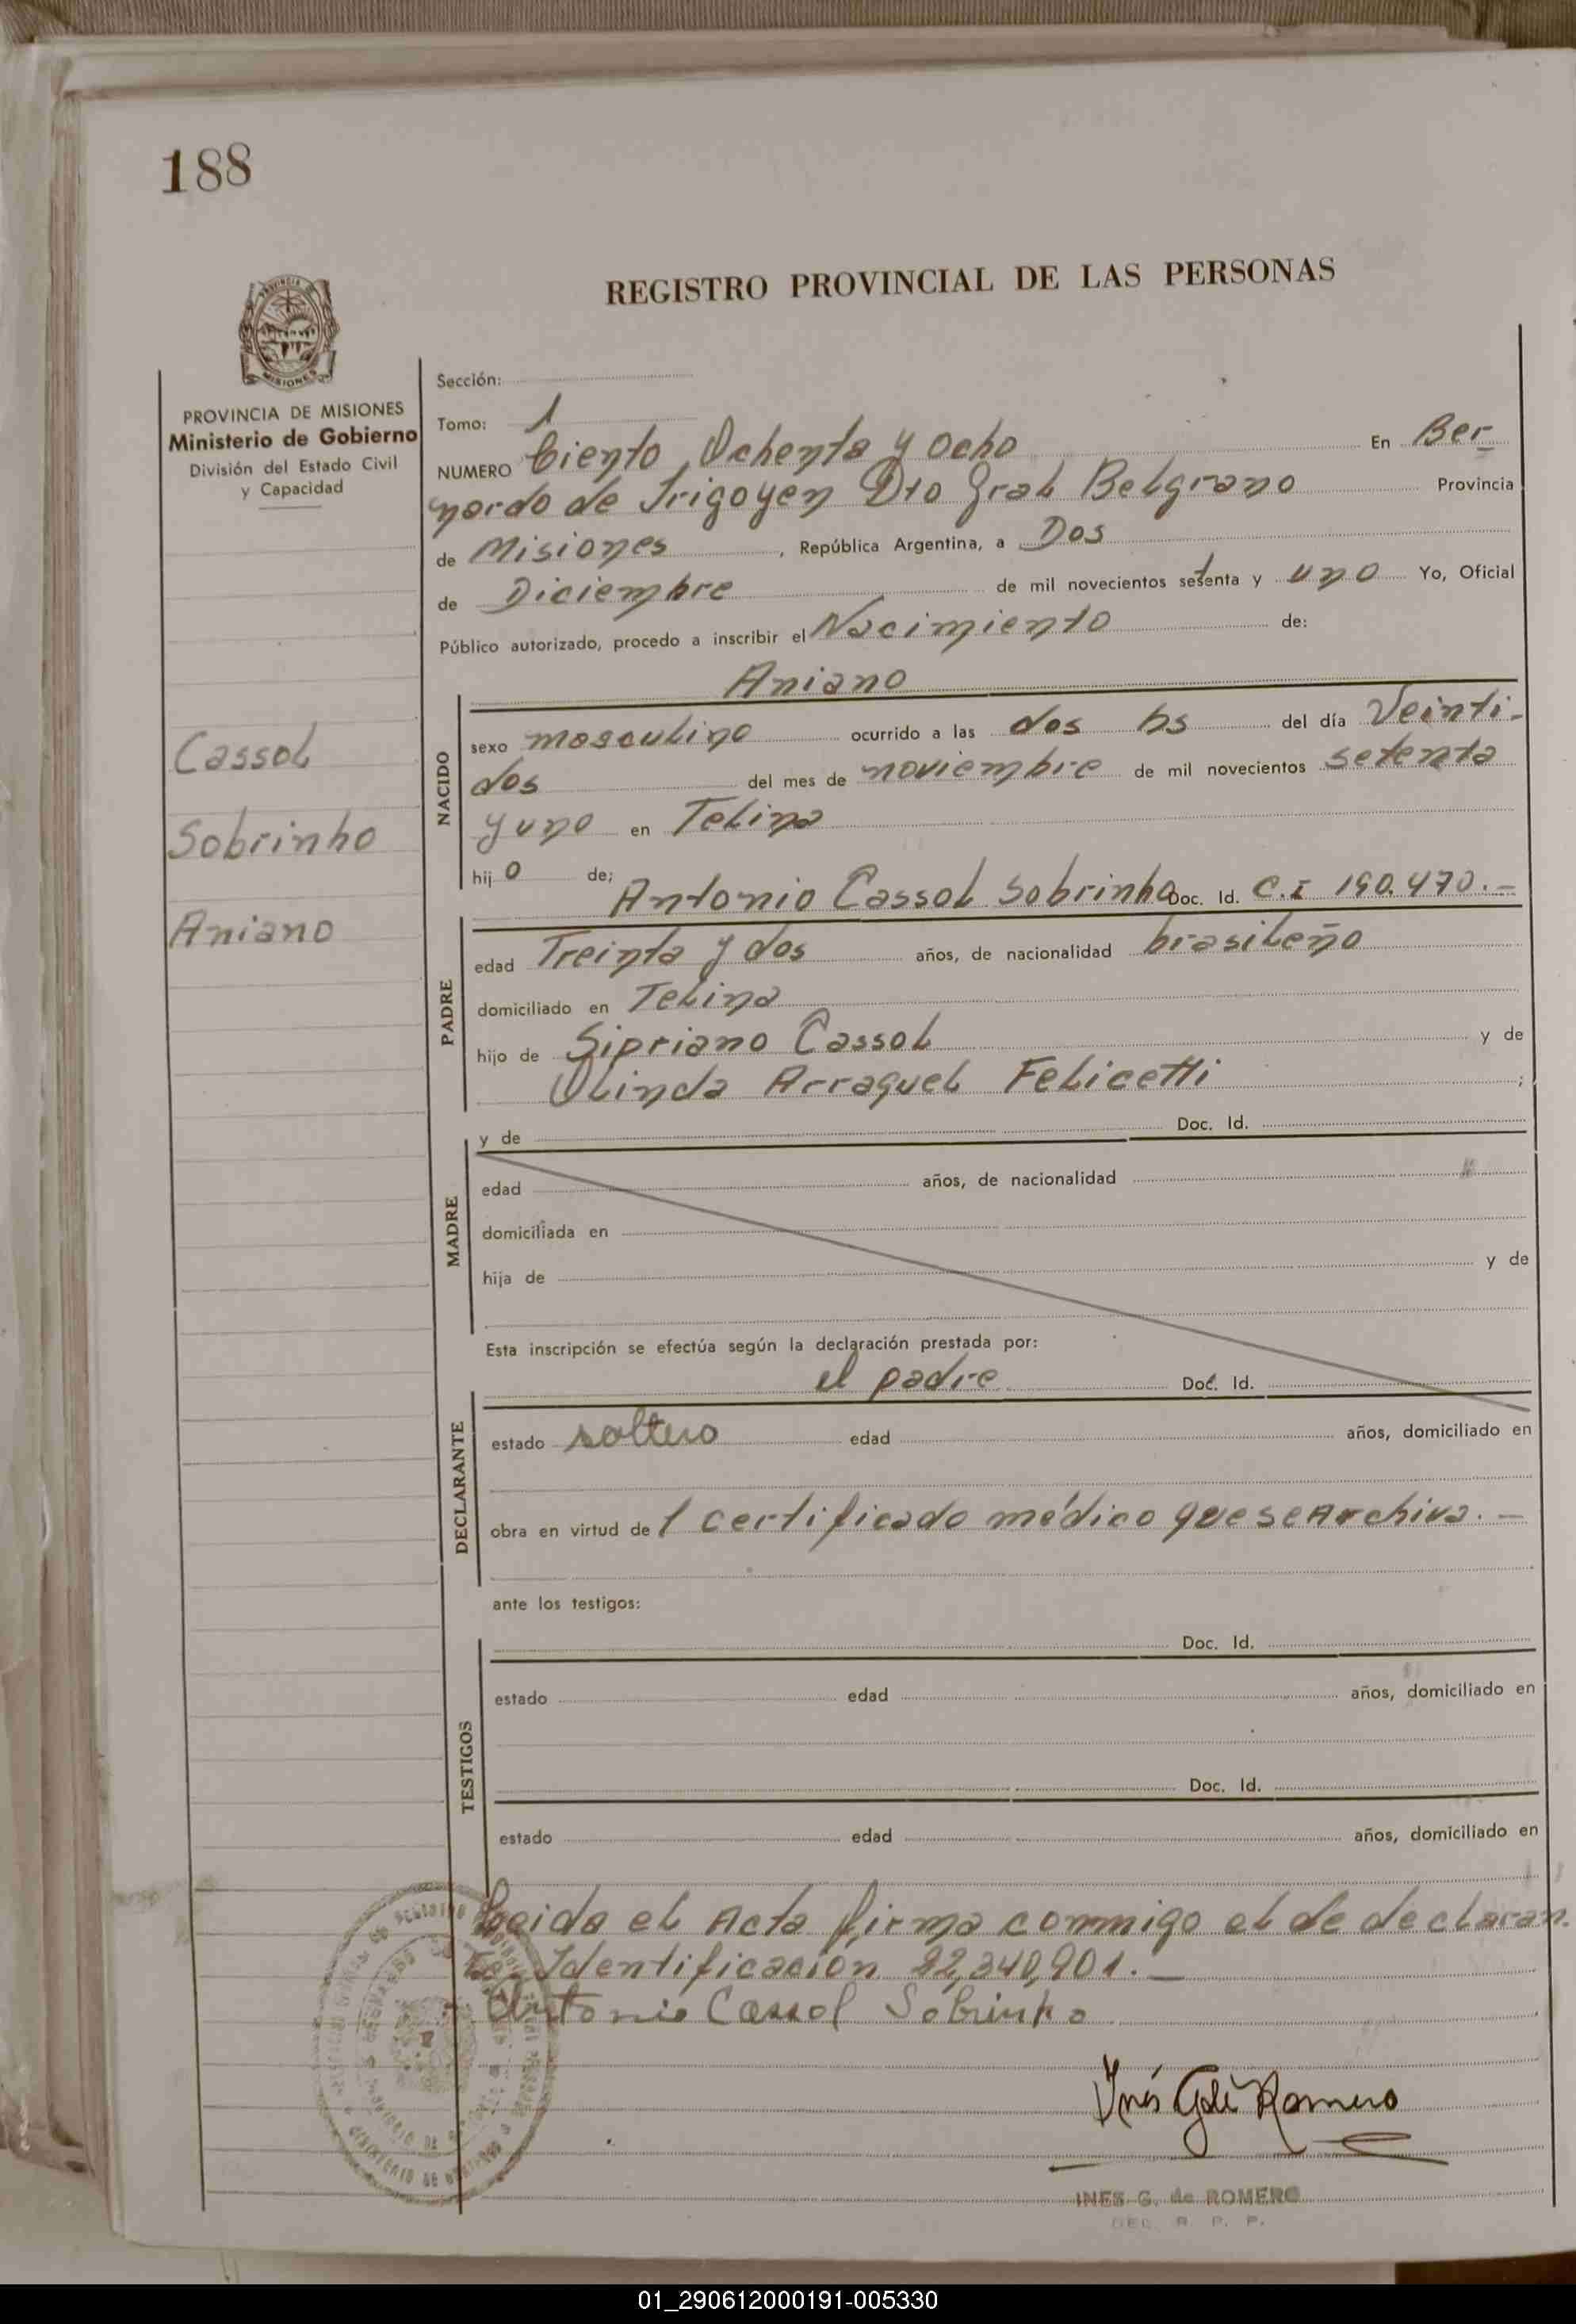 188
REGISTRO PROVINCIAL DE LAS PERSONAS
PROVINCIA DE MISIONES
Ministerio de Gobierno
División del Estado Civil
y Capacidad
Cassol
Sobrinho
Aniano
Sección:
Tomo: 1
NUMERO Ciento Ochenta y ocho En Ber
nardo de Irigoyen Dto Gral Belgrano Provincia
de Misiones, República Argentina, a Dos
de Diciembre de mil novecientos setenta y uno Yo, Oficial
Público autorizado, procedo a inscribir el Nacimiento de:
Aniano
NACIDO
sexo masculino ocurrido a las dos hs del día Veinti-
dos del mes de noviembre de mil novecientos setenta
y uno en Telina
hijo de;
Antonio Cassol Sobrinho Doc. Id. C.I 190.470.-
PADRE
edad Treinta y dos años, de nacionalidad brasileño
domiciliado en Telina
hijo de Sipriano Cassol y de
Olinda Arraquel Felicetti ;
y de Doc. Id.
MADRE
edad años, de nacionalidad
domiciliada en
hija de y de
Esta inscripción se efectúa según la declaración prestada por:
el padre Doc. Id.
DECLARANTE
estado soltero edad años, domiciliado en
obra en virtud de 1 certificado médico que se Archiva.-
ante los testigos:
Doc. Id.
TESTIGOS
estado edad años, domiciliado en
Doc. Id.
estado edad años, domiciliado en
Leida el Acta firma conmigo el de declaran.
te. Identificación 22,340,901.-
Antonio Cassol Sobrinho
Inés G. de Romero
INES G. de ROMERO
DEL. R. P. P.
01_290612000191-005330